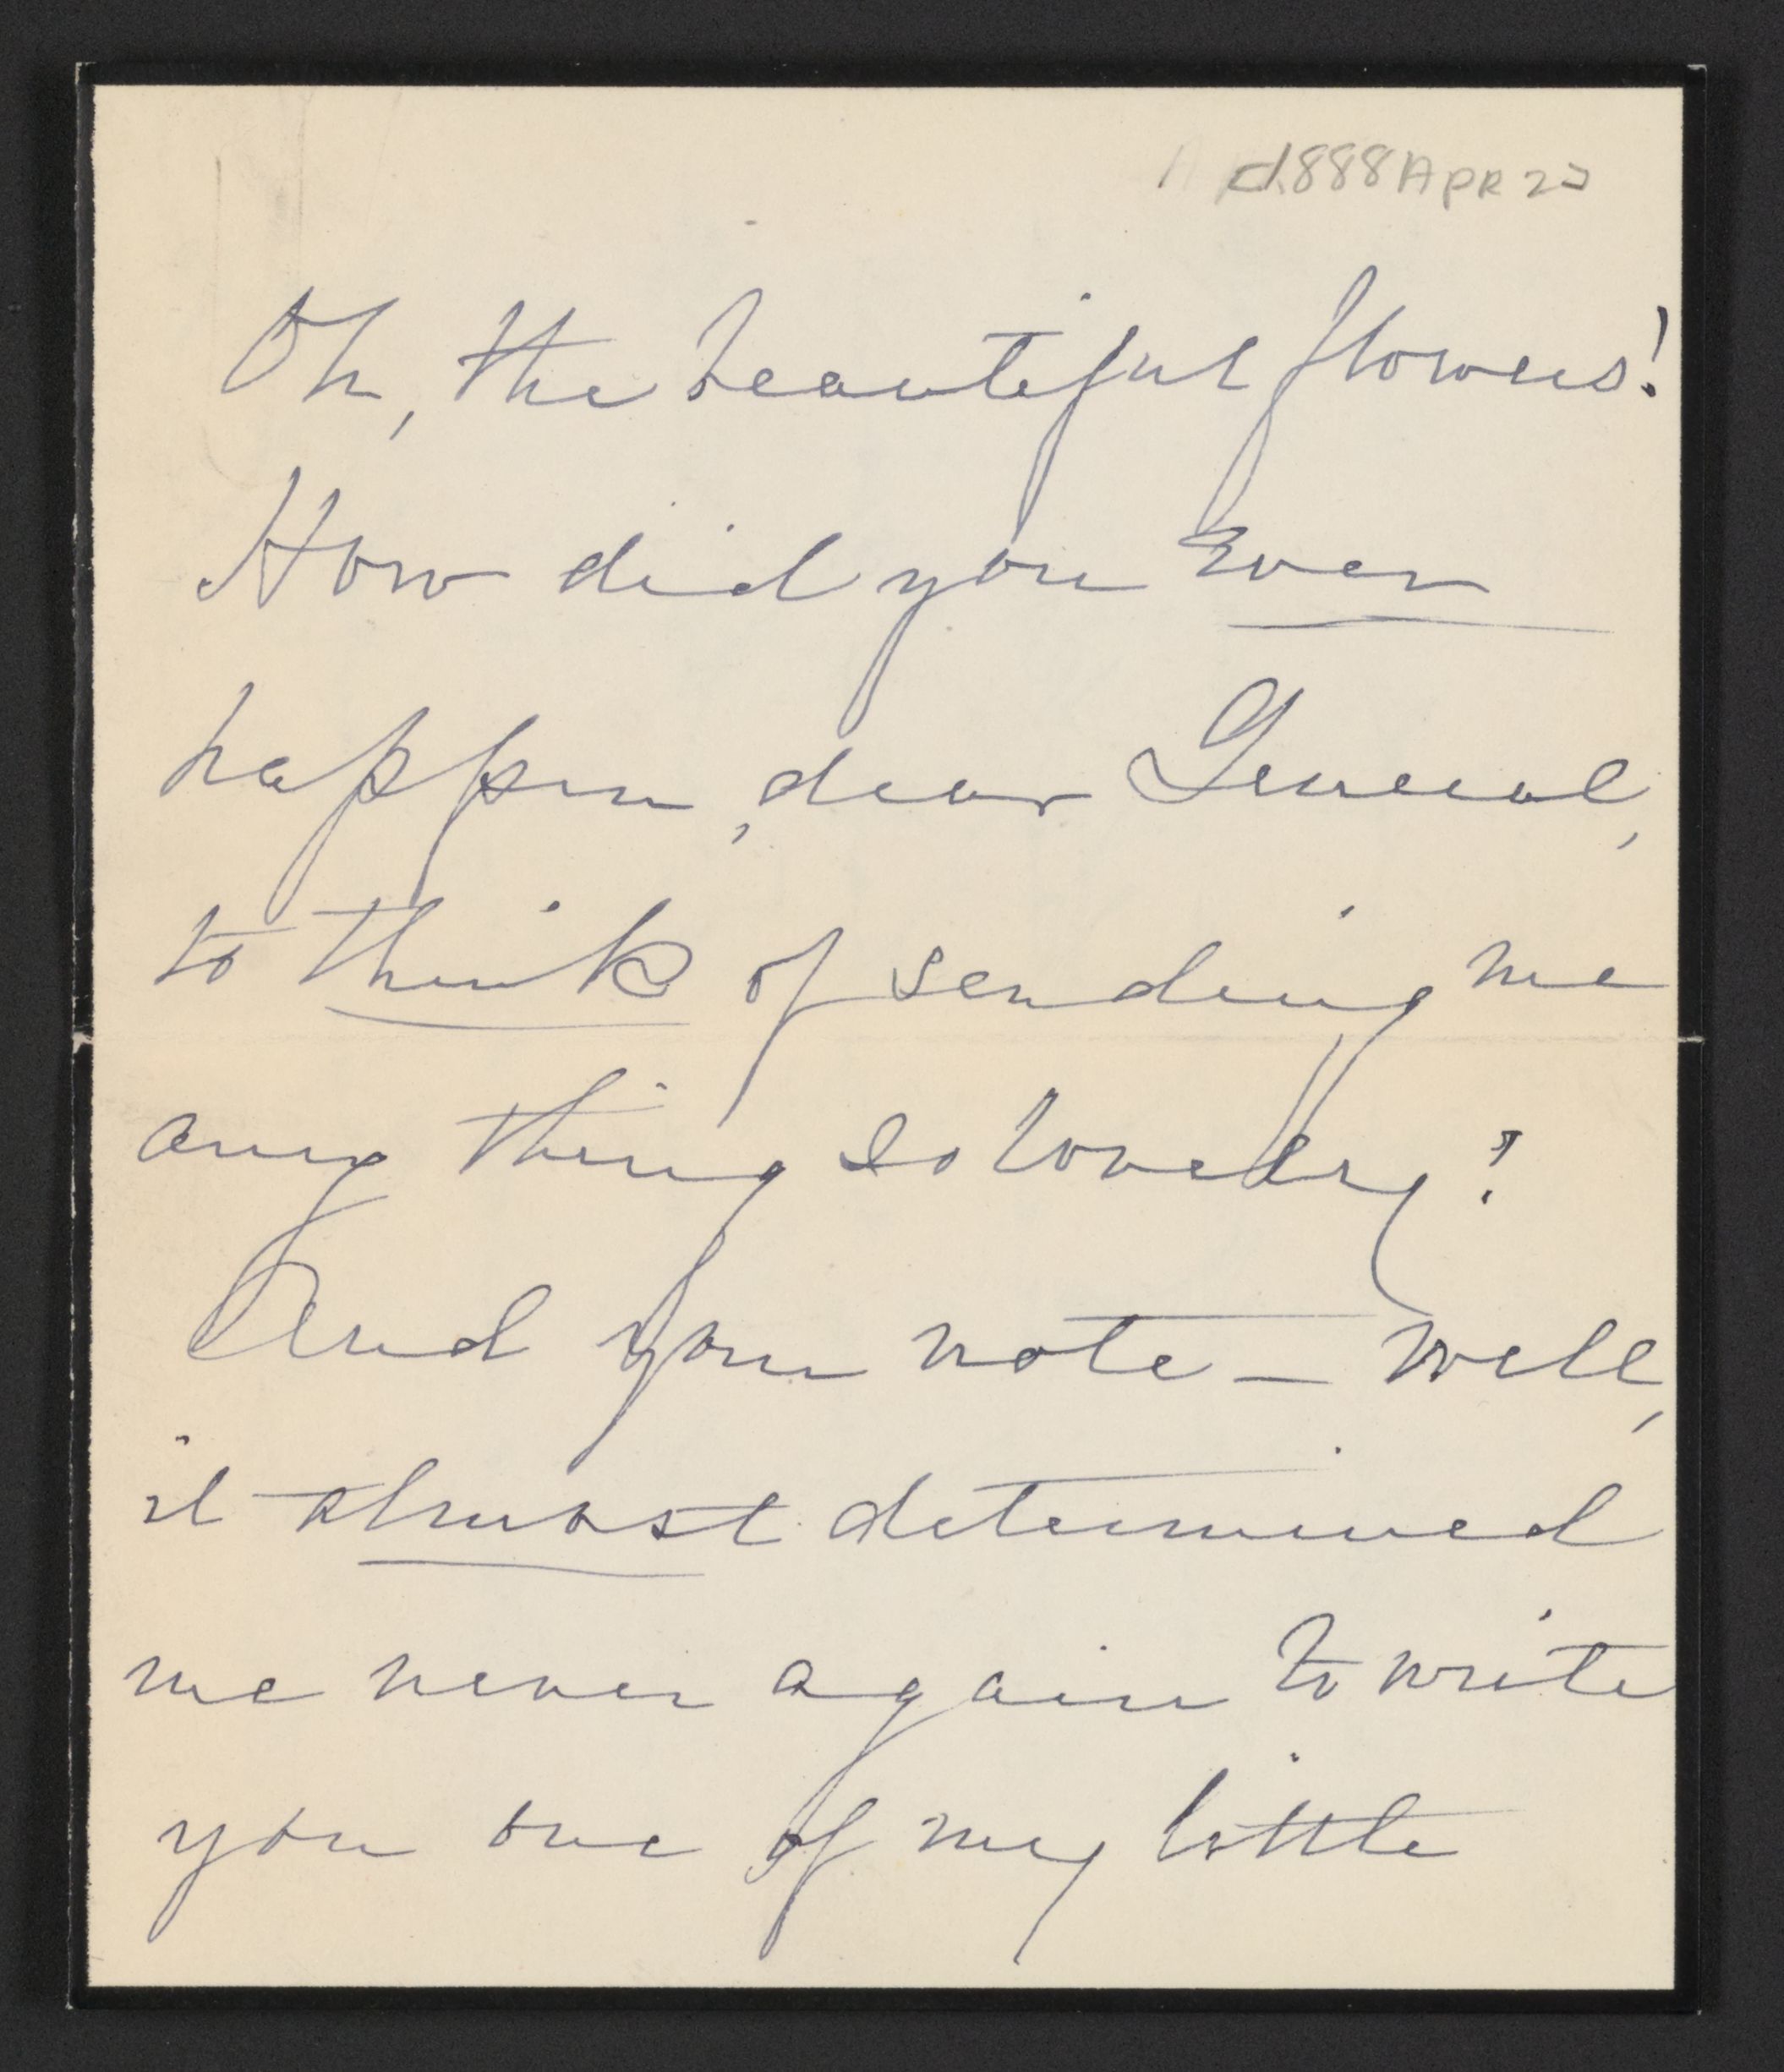 d.888 APR 27
Oh, the beautiful flowers!
How did you ever
happen, dear General,
to think of sending me
any thing so lovely?
And your note — well,
it almost determined
me never again to write
you one of my little